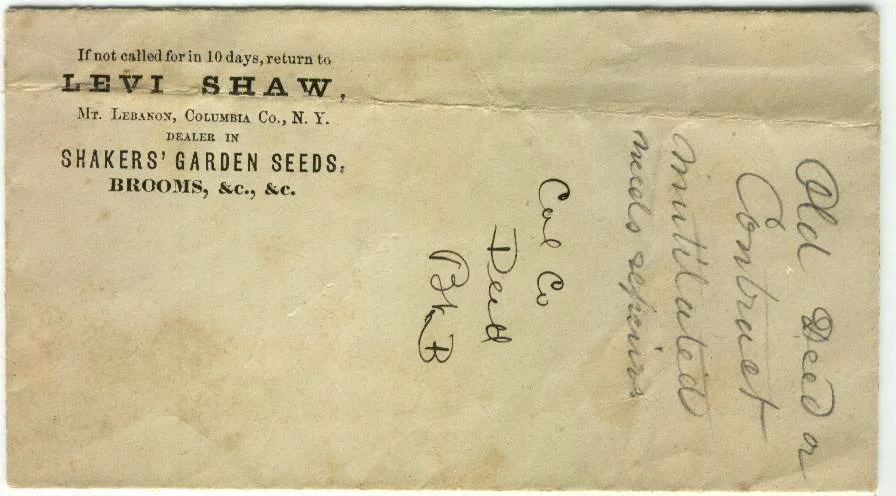 If not called for in 10 days, return to
LEVI SHAW,
Mt. Lebanon, Columbia Co., N. Y.
DEALER IN
SHAKERS' GARDEN SEEDS,
BROOMS, &c., &c.
Old Deed or
Contract
mutilated
needs repairs
Col Co
Deed
Bk B